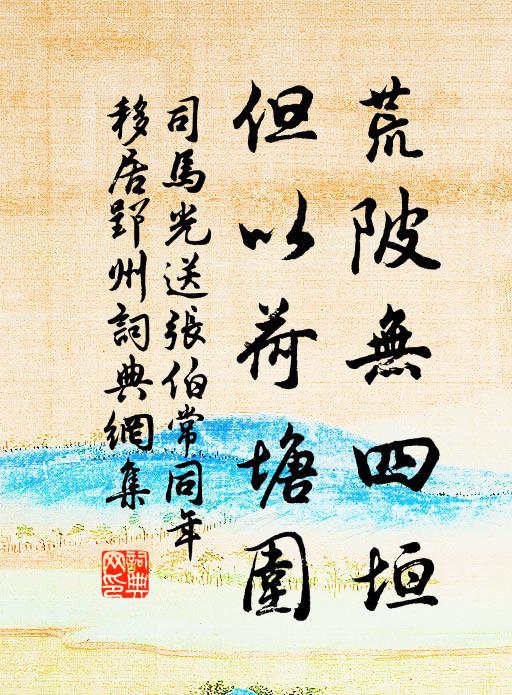 荒陂無四垣
但以荷塘圍
司馬光送張伯常同年
移居郢州詞典網集
詞典
网印